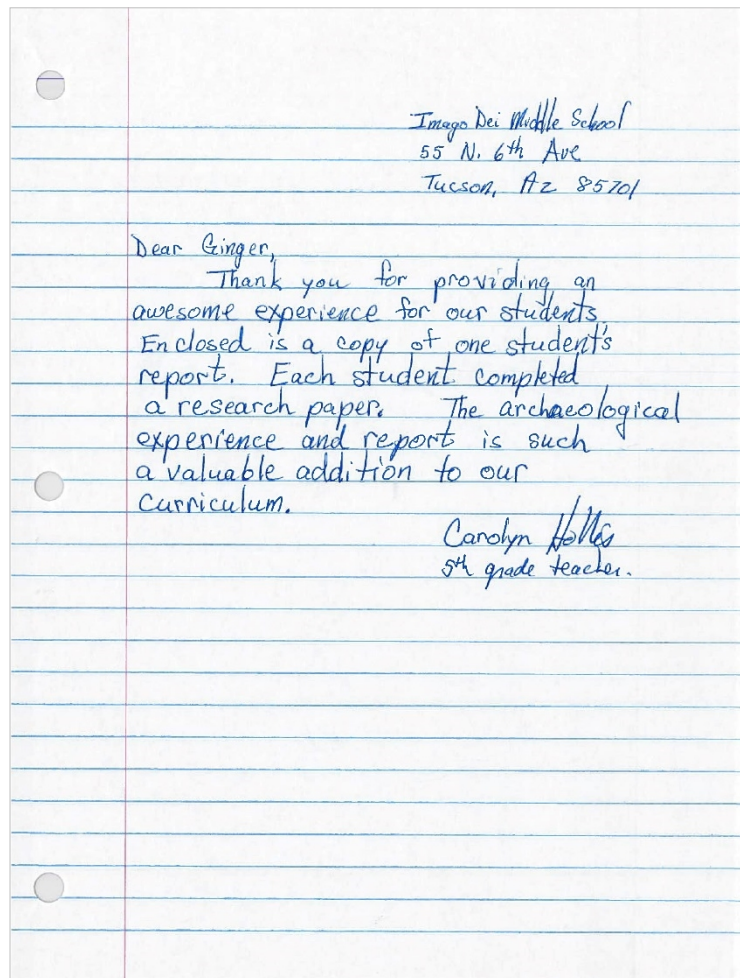 Imago Dei Middle School
55 N. 6th Ave
Tucson, Az 85701
Dear Ginger,
Thank you for providing an
awesome experience for our students.
Enclosed is a copy of one student's
report. Each student completed
a research paper. The archaeological
experience and report is such
a valuable addition to our
curriculum.
Carolyn
5th grade teacher.